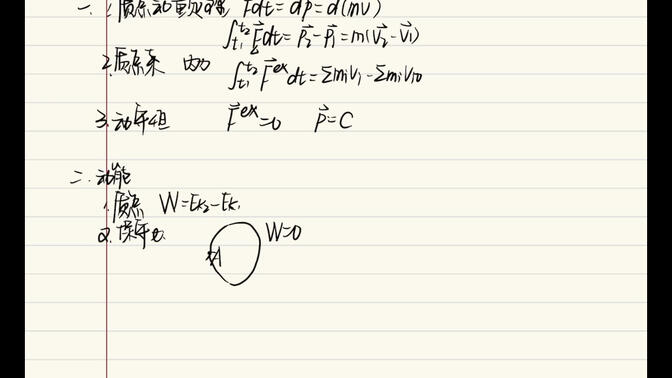 一. 1.质点动量定理 Fdt=dp=d(mv)
∫_{t1}^{t2} F⃗dt=P⃗2-P⃗1=m(V⃗2-V⃗1)
2.质点系 ∫_{t1}^{t2} F⃗^{ex}dt=ΣmiVi-ΣmiVi0
3.动 恒 F⃗^{ex}=0 P⃗=C
二.动能
1.质点 W=Ek2-Ek1
2.保守力 W=0
A